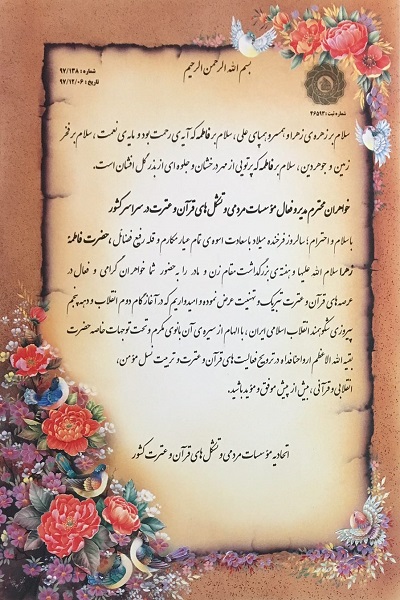 بسم الله الرحمن الرحیم
شماره : ۹۷/۱۳۸
تاریخ : ۹۷/۱۲/۰۶
شماره ثبت : ۴۶۵۹۳
سلام بر زهره‌ی زهرا و همسر و همپای علی ، سلام بر فاطمه که آیه‌ی رحمت بود و مایه‌ی نعمت ، سلام بر فخر
زمین و جوهر دین ، سلام بر فاطمه که پرتویی از مهر درخشان و جلوه ای از بذر گل افشان است.
خواهران محترم مدیر و فعال مؤسسات مردمی و تشکل های قرآن و عترت در سراسر کشور
با سلام و احترام ؛ سالروز فرخنده میلاد با سعادت اسوه‌ی تمام عیار مکارم و قله رفع فضائل ، حضرت فاطمة
زهرا سلام الله علیها و هفته‌ی بزرگداشت مقام زن و مادر را به حضور شما خواهران گرامی و فعال در
عرصه های قرآن و عترت تبریک و تهنیت عرض نموده و امیدواریم که در آغاز گام دوم انقلاب و دهه پنجم
پیروزی شکوهمند انقلاب اسلامی ایران ، با الهام از سیره‌ی آن بانوی مکرم و تحت توجهات خاصه حضرت
بقیة الله الاعظم ارواحنا فداه در ترویج فعالیت های قرآن و عترت و تربیت نسل مؤمن،
انقلابی و قرآنی ، بیش از پیش موفق و مؤید باشید.
اتحادیه مؤسسات مردمی و تشکل های قرآن و عترت کشور